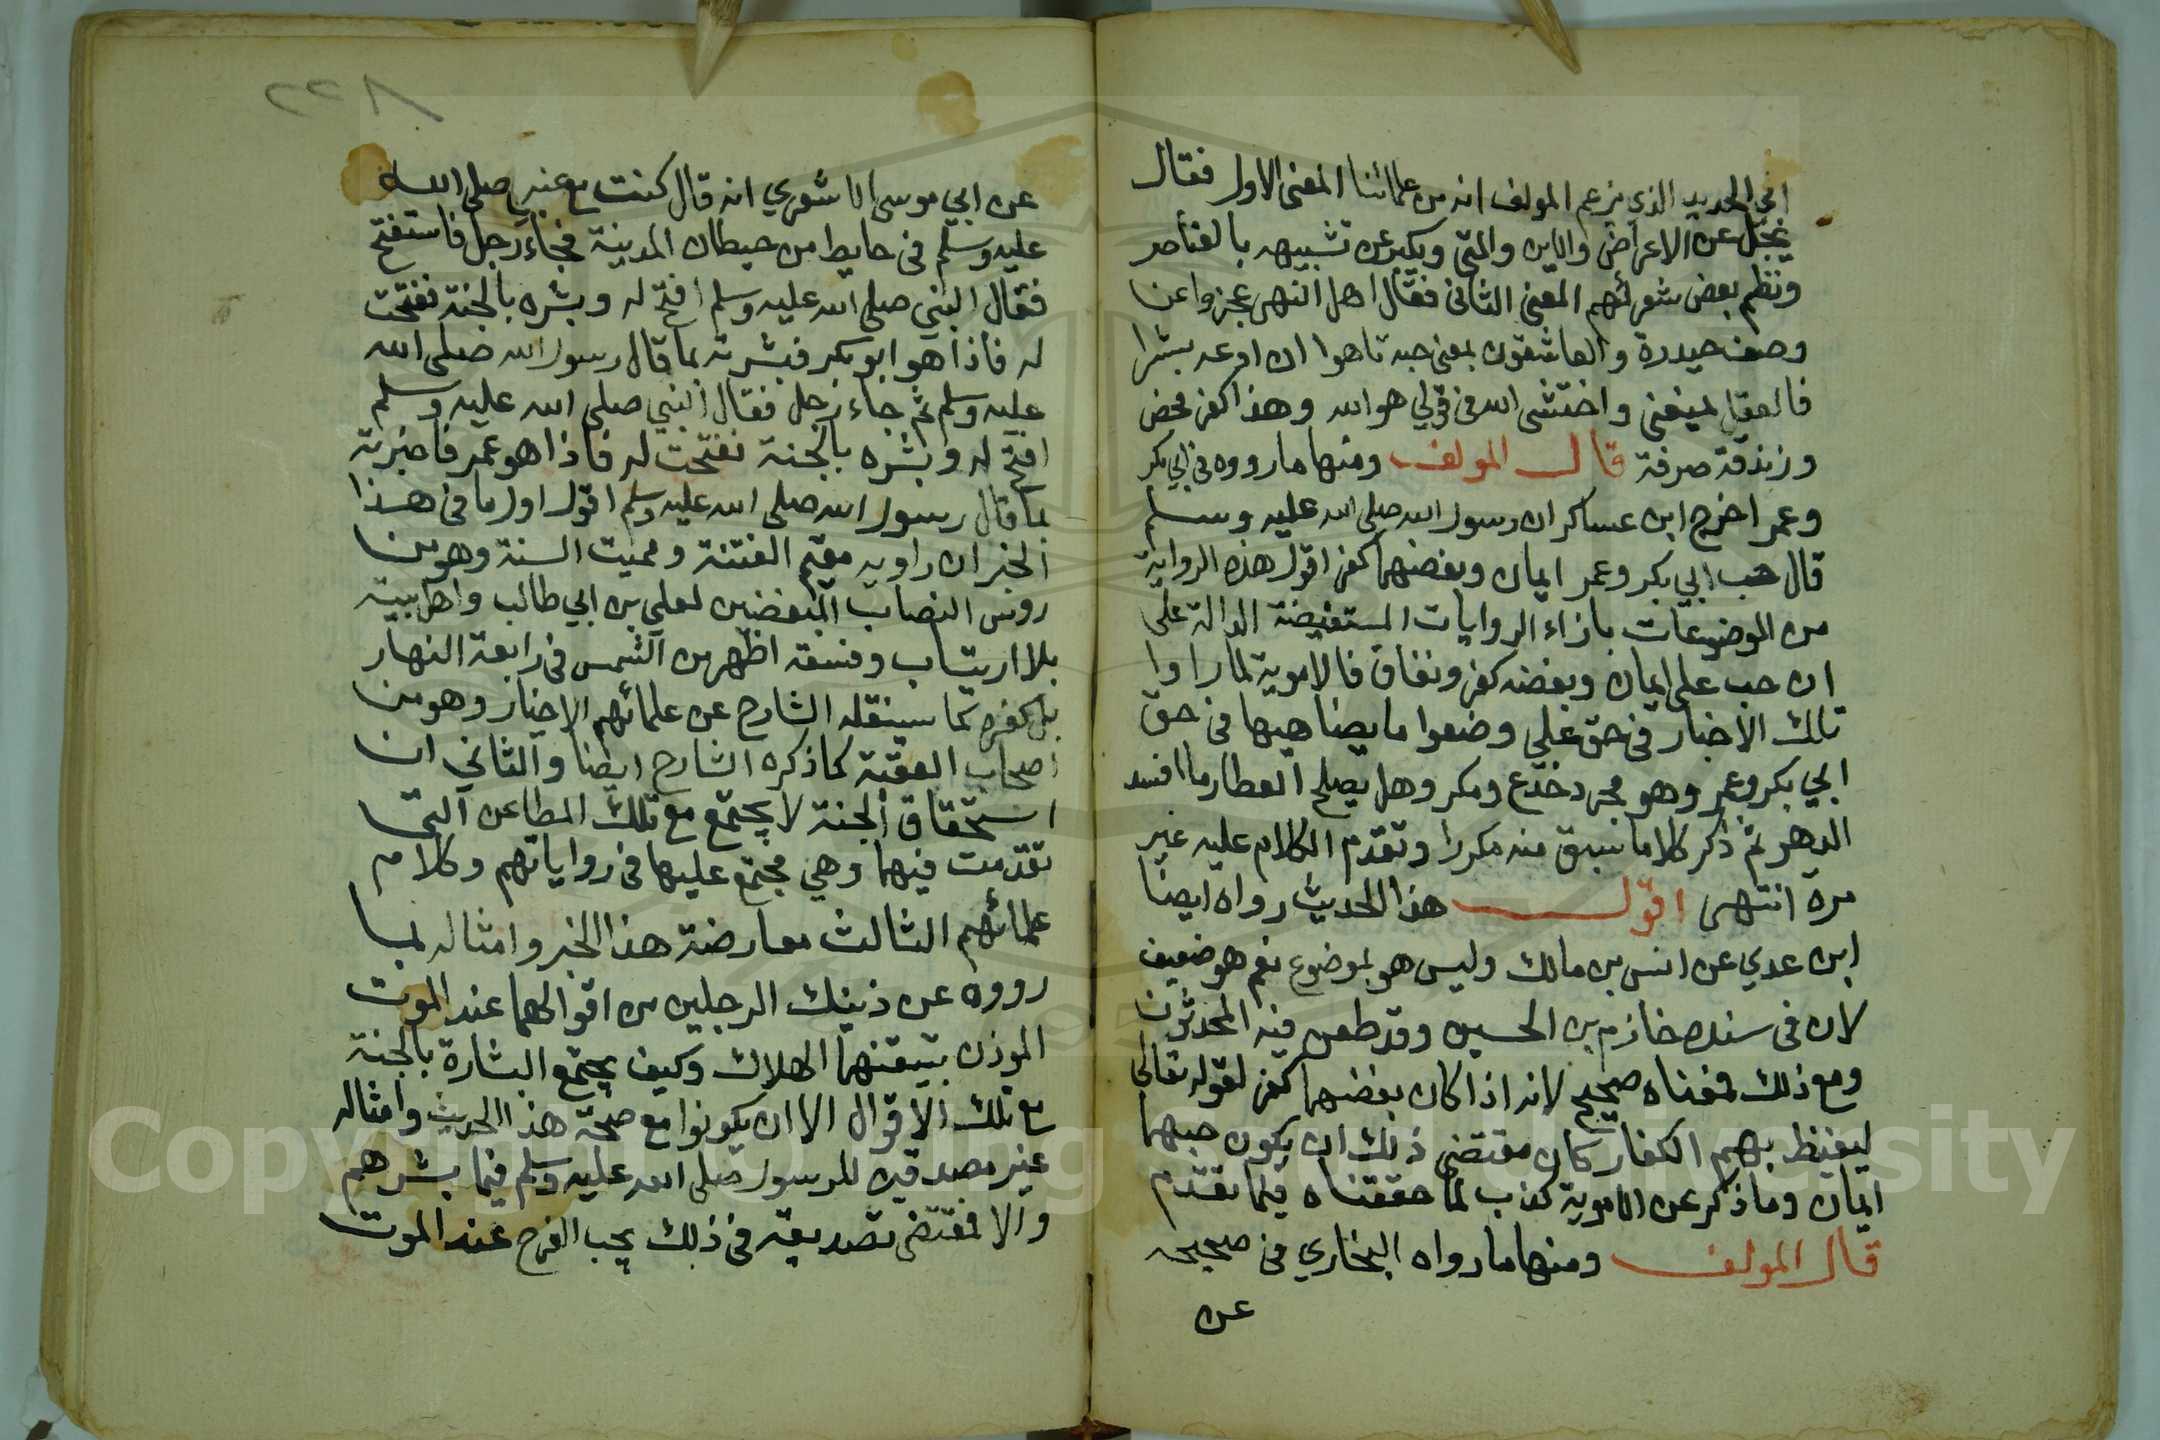 ابي الحديد الذي يزعم المولف انه من علمائنا المعنى الاول فقال
يجل عن الاعراض والاين والمتى ويكبر عن تشبيهه بالعناصر
ونظم بعض شعرائهم المعنى الثاني فقال اهل النهى عجزوا عن
وصف حيدرة والعاشقون بمعنى حبه تاهوا ان ادعه بشرا
فالعقل يمنعني واختشى الله في قولي هو الله وهذا كفر محض
وزندقة صرفة قال المولف ومنها ما رووه في ابي بكر
وعمر اخرج ابن عساكر ان رسول الله صلى الله عليه وسلم
قال حب ابي بكر وعمر ايمان وبغضهما كفر اقول هذه الرواية
من الموضوعات بازاء الروايات المستفيضة الدالة على
ان حب علي ايمان وبغضه كفر ونفاق فالاموية لما راوا
تلك الاخبار في حق علي وضعوا ما يضاهيها في حق
ابي بكر وعمر وهو مجرد خدع ومكر وهل يصلح العطار ما افسد
الدهر ثم ذكر كلاما سبق منه مكررا وتقدم الكلام عليه غير
مرة انتهى اقول هذا الحديث رواه ايضا
ابن عدي عن انس بن مالك وليس هو بموضوع نعم هو ضعيف
لان في سنده خازم بن الحسين وقد طعن فيه المحدثون
ومع ذلك فمعناه صحيح لانه اذا كان بغضهما كفر لقوله تعالى
ليغيظ بهم الكفار كان مقتضى ذلك ان يكون حبهما
ايمان وما ذكر عن الاموية كذب لما حققناه فيما تقدم
قال المولف ومنها ما رواه البخاري في صحيحه
عن
٢٢٨
عن ابي موسى الاشعري انه قال كنت مع النبي صلى الله
عليه وسلم في حايط من حيطان المدينة فجاء رجل فاستفتح
فقال النبي صلى الله عليه وسلم افتح له وبشره بالجنة ففتحت
له فاذا هو ابو بكر فبشرته بما قال رسول الله صلى الله
عليه وسلم ثم جاء رجل فقال النبي صلى الله عليه وسلم
افتح له وبشره بالجنة ففتحت له فاذا هو عمر فاخبرته
بما قال رسول الله صلى الله عليه وسلم اقول اول ما في هذا
الخبر ان راويه مقيم الفتنة ومميت السنة وهو من
روس النصاب المبغضين لعلي بن ابي طالب واهل بيته
بلا ارتياب وفسقه اظهر من الشمس في رابعة النهار
بل كفره كما سينقله الشارح عن علمائهم الاخيار وهو من
اصحاب العقبة كما ذكره الشارح ايضا والثاني ان
استحقاق الجنة لا يجتمع مع تلك المطاعن التي
تقدمت فيهما وهي مجتمع عليها في رواياتهم وكلام
علمائهم الثالث معارضة هذا الخبر وامثاله بما
رووه عن ذينك الرجلين من اقوالهما عند الموت
الموذن بتيقنهما الهلاك وكيف يجتمع البشارة بالجنة
مع تلك الاقوال الا ان يكونوا مع صحة هذا الحديث وامثاله
غير مصدقين للرسول صلى الله عليه وسلم فيما بشرهم
والا فمقتضى تصديقه في ذلك يجب الفرح عند الموت
Copyright © King Saud University